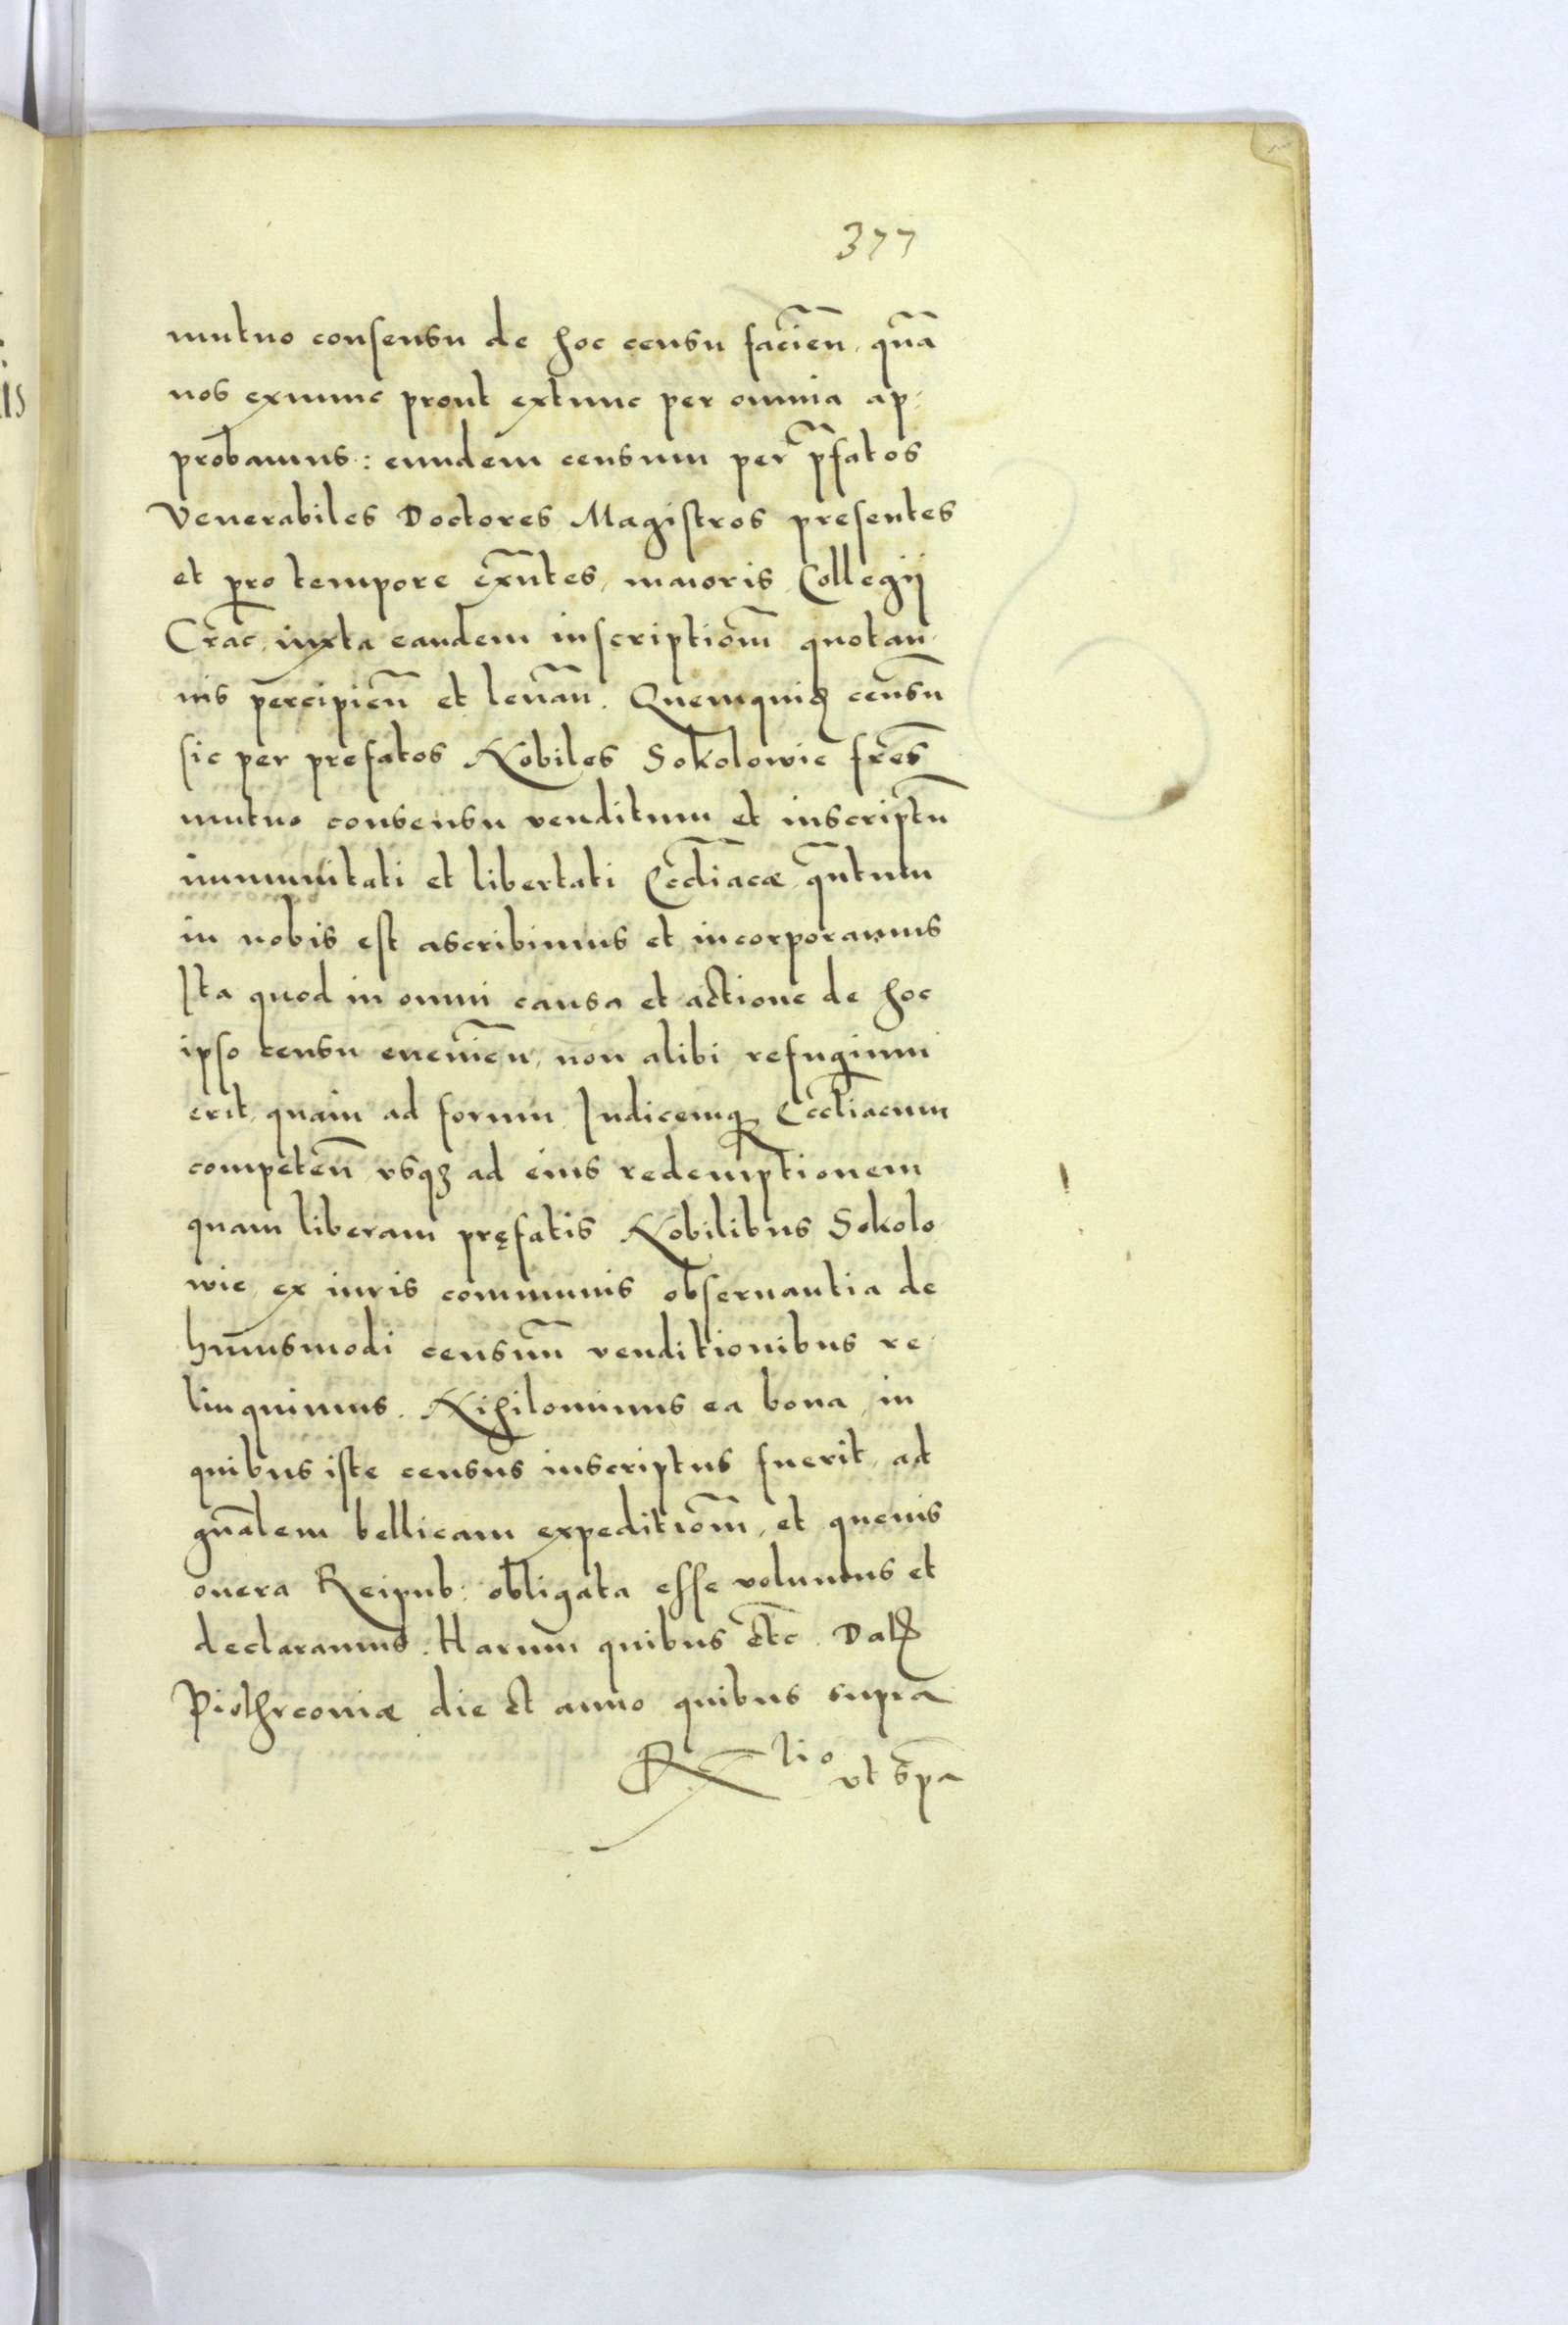 377
mutuo consensu de hoc censu facien̄, quā
nos exnunc prout extunc per omnia ap-
probamus: eundem censum per p̄fatos
Venerabiles Doctores Magistros presentes
et pro tempore exn̄tes, maioris Collegij
Crac̄, iuxta eandem inscriptiom̄ quotan-
nis percipien̄ et leuan̄. Quemquid censū
sic per prefatos Nobiles Sokolowie fr̄es
mutuo consensu venditum et inscriptū
immunitati et libertati Eccl̄iacæ, qn̄tum
in nobis est ascribimus et incorporamus
Ita quod in omni causa et actione de hoc
ipso censu eueníen̄, non alibi refugium
erit, quam ad forum Iudicemqꝫ Eccl̄iacum
competen̄ vsqꝫ ad eius redemptionem
quam liberam pręfatis Nobilibus Sokolo
wie, ex iuris communis obseruantia de
huiusmodi censuū venditionibus re-
linquimus. Nihilominus ea bona, in
quibus iste census inscriptus fuerit, ad
gn̄alem bellicam expeditiom̄, et queuis
onera Reipub: obligata esse volumus et
declaramus. Harum quibus et̄c. Dat̄
Piothrconiæ die et anno quibus supra
R̄lio
vt s̄pa